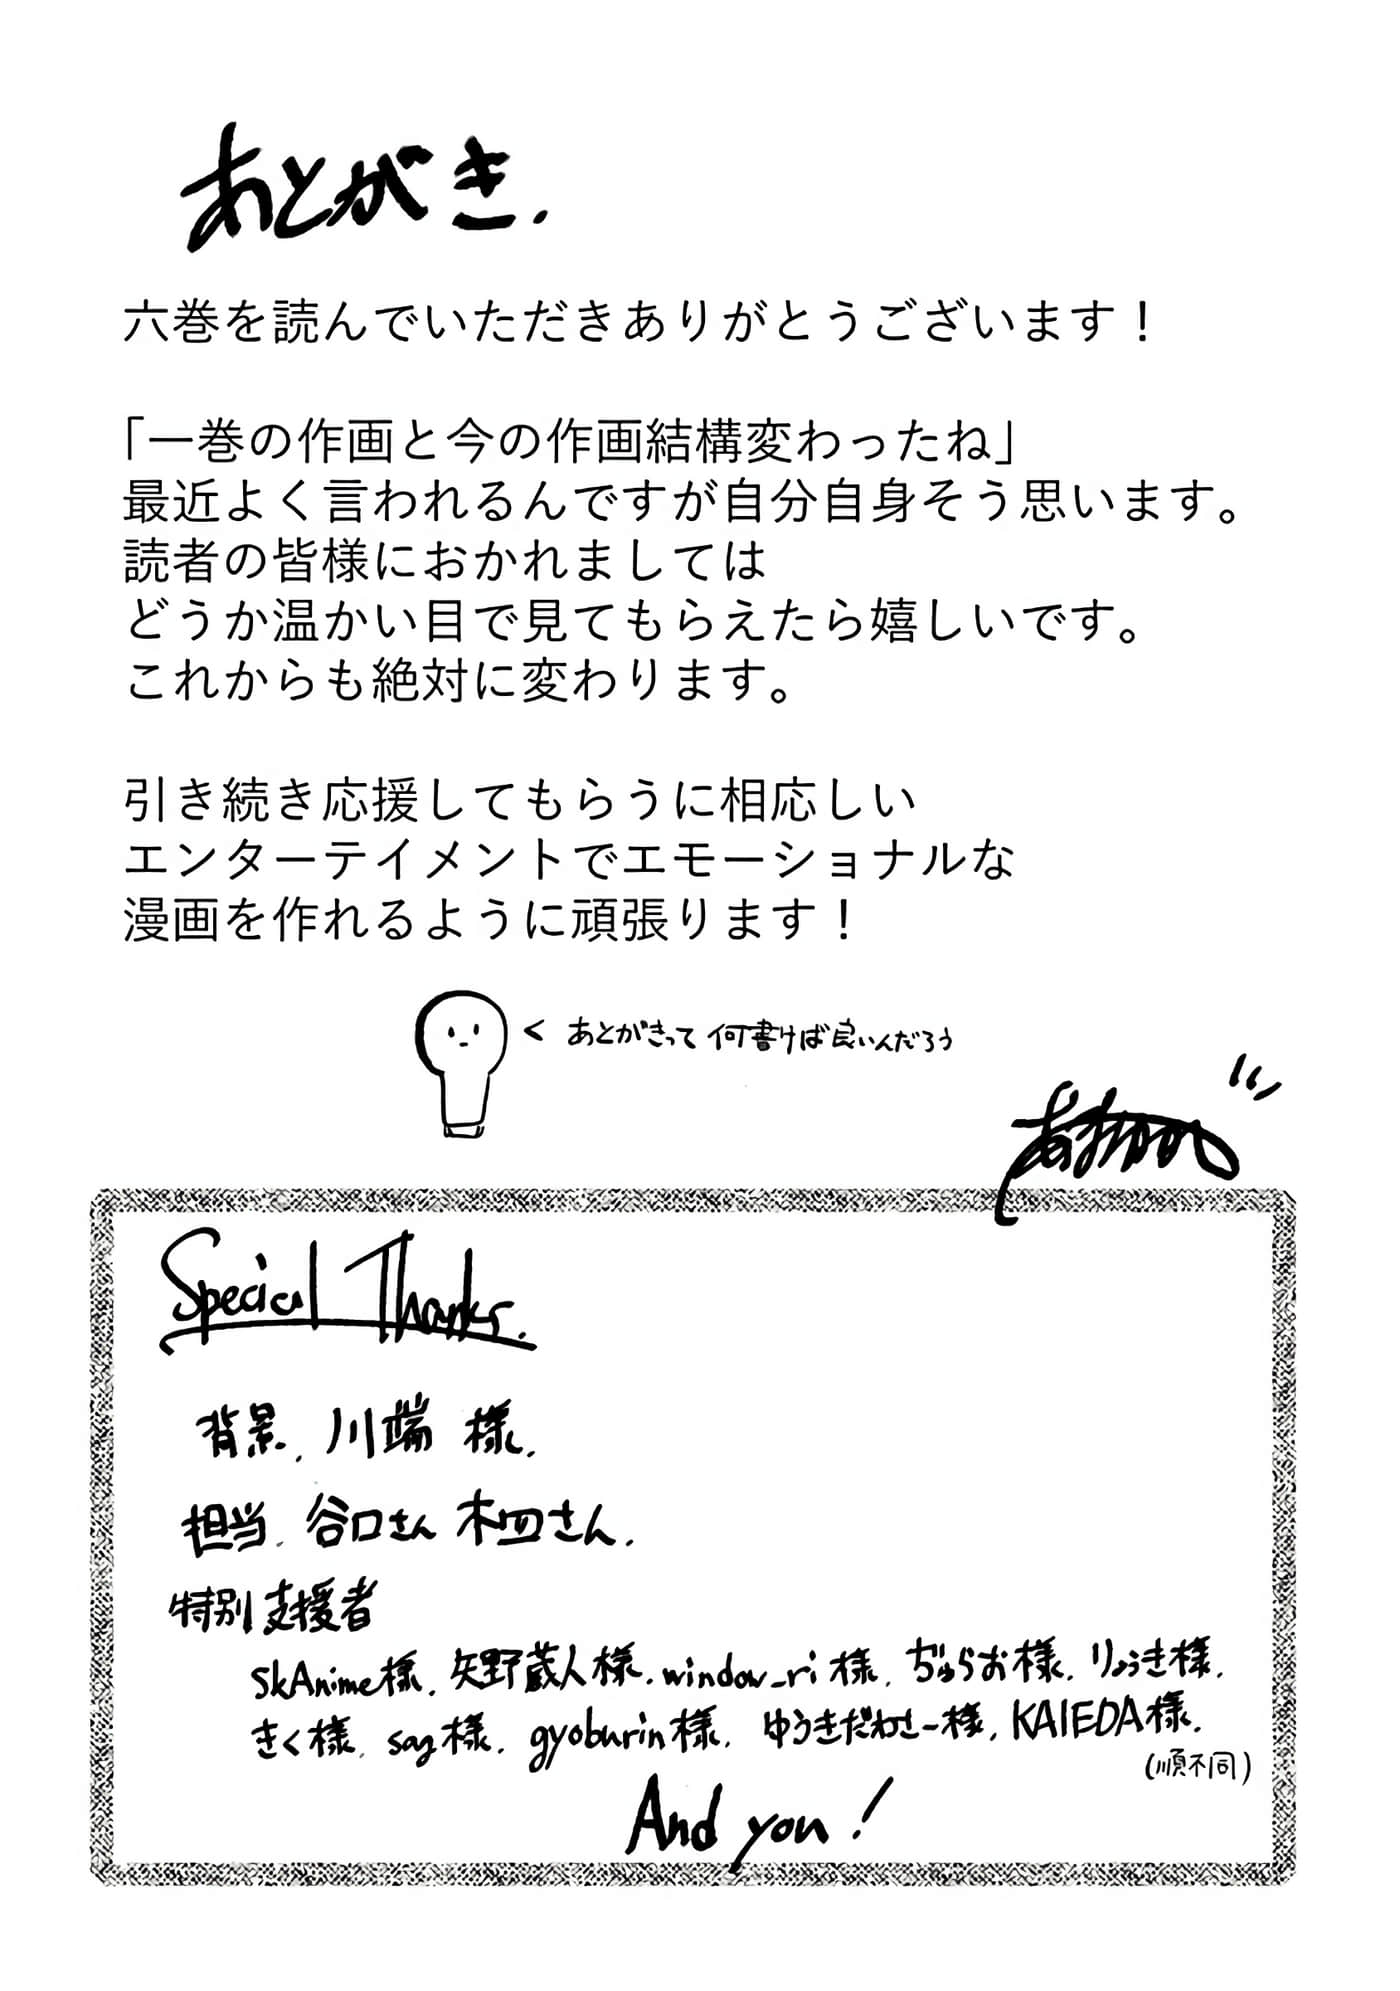 あとがき.
六巻を読んでいただきありがとうございます!
「一巻の作画と今の作画結構変わったね」
最近よく言われるんですが自分自身そう思います。
読者の皆様におかれましては
どうか温かい目で見てもらえたら嬉しいです。
これからも絶対に変わります。
引き続き応援してもらうに相応しい
エンターテイメントでエモーショナルな
漫画を作れるように頑張ります!
< あとがきって 何書けば良いんだろう
Special Thanks.
背景. 川端 様.
担当. 谷口さん 木皿さん.
特別支援者
SkAnime様. 矢野蔵人様. window_ri様. ぢゅらお様. りょうき様.
きく様. say様. gyoburin様. ゆうきだわさー様. KAIEDA様.
(順不同)
And you!